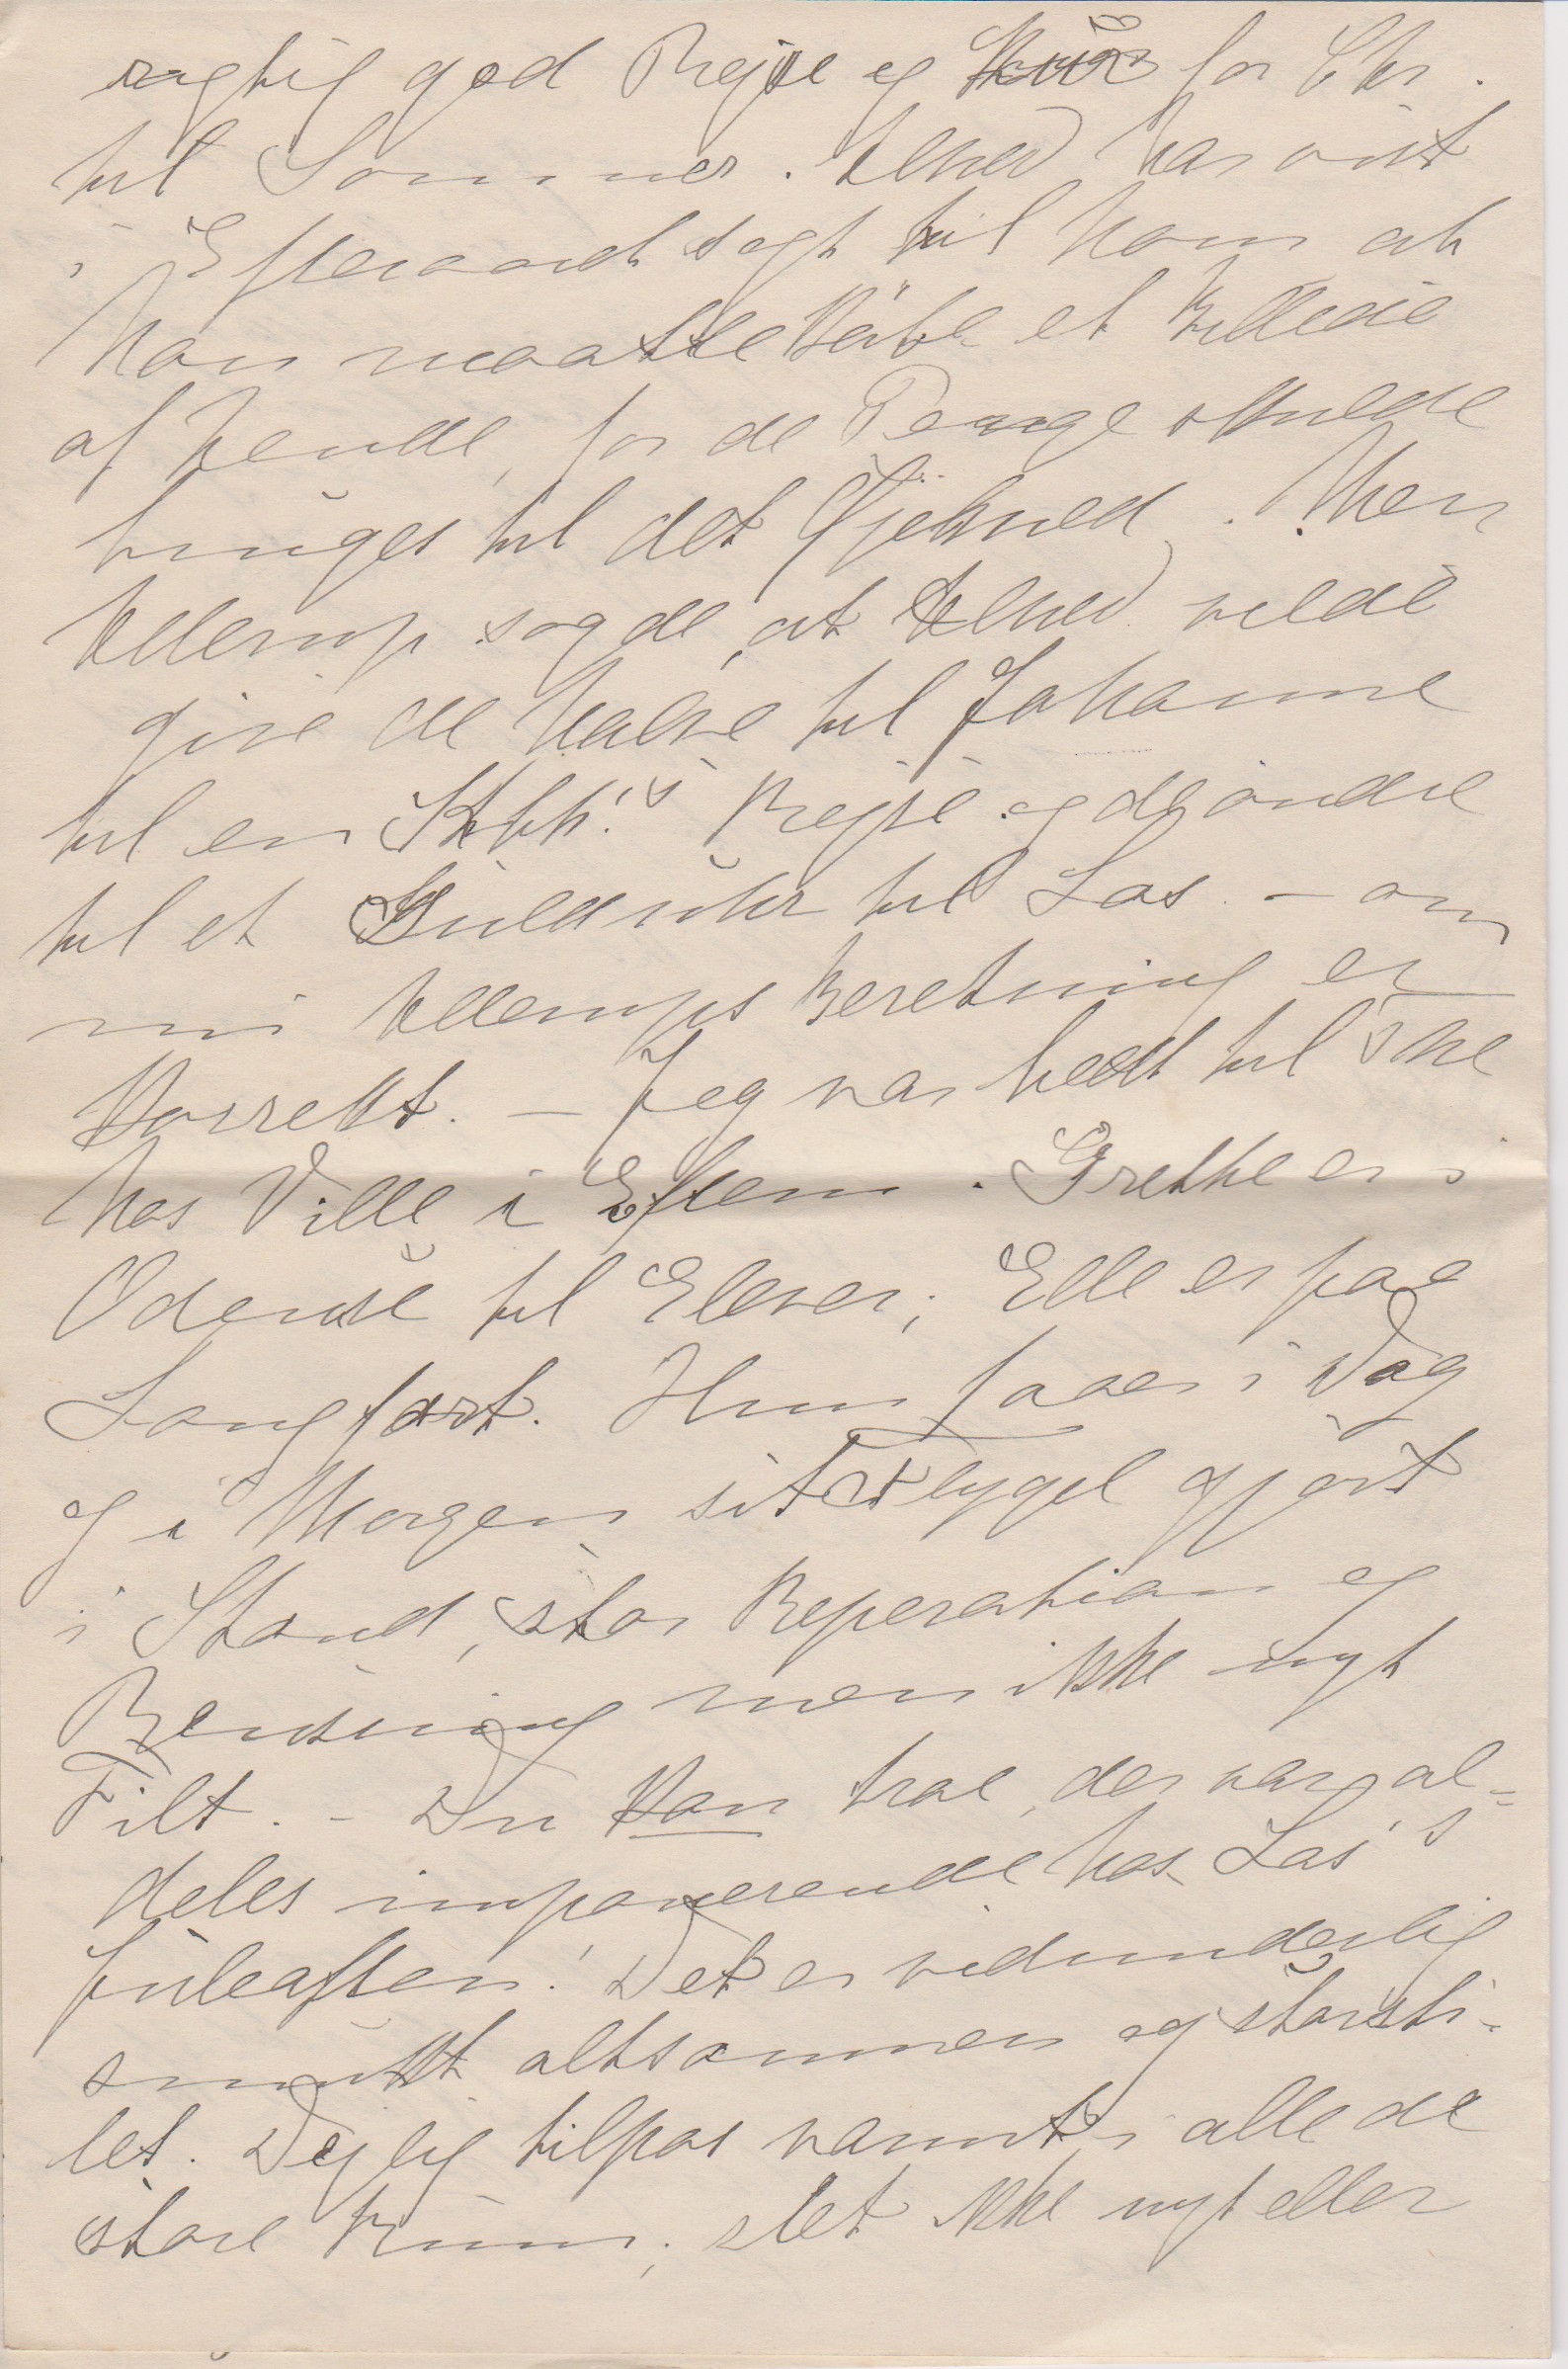 rigtig god Rejse og Kur for Chr.
til Sommer. Alhed har vist
i Efteraaret sagt til ham at
han maatte købe et Billede
af hende, for de Penge skulde
bruges til det Øjemed. Men
Ellerup sagde, at Alhed vilde
give de halve til Johanne
til en Kbh.'s Rejse og de andre
til et Gulduhr til Las. – om
nu Ellerups Beretning er
korrekt. – Jeg var bedt til The
hos Ville i Efterm. Grethe er i
Odense til Elever; Elle er paa
Langfart. Hun faaer i Dag
og i Morgen sit Flygel gjort
i Stand, stor Reperation og
Rensning men ikke nyt
Filt. – Du kan tro, der var al-
deles imponerende hos Las's
Juleaften! Det er vidunderlig
smukt altsammen og storsti-
let. Dejlig tilpas varmt i alle de
store Rum; slet ikke nyt eller